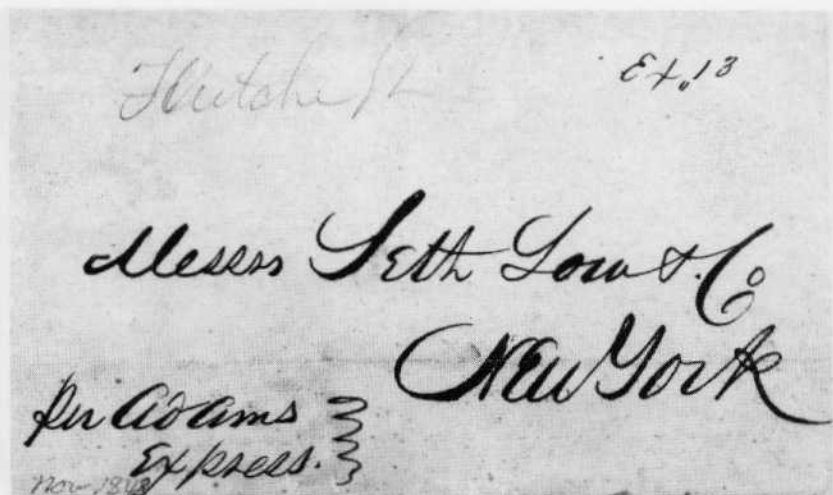 Ex. 13
Messrs Seth Low & Co
New York
Per Adams
Express.
Nov 1848